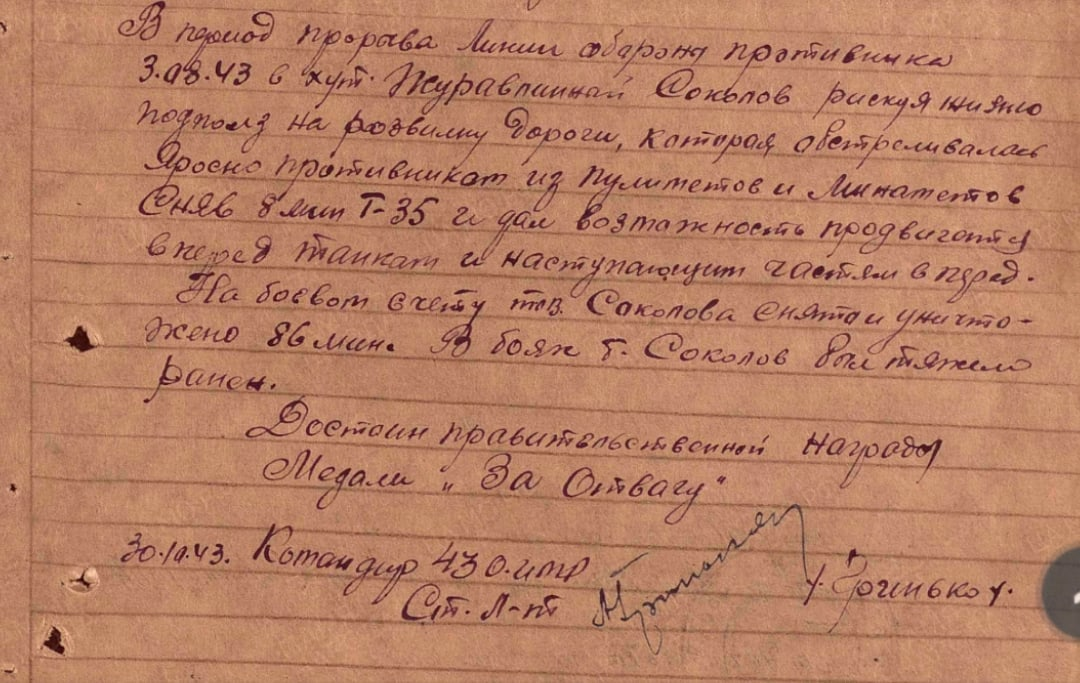 В период прорыва линии обороны противника
3.08.43 в хут. Журавлиной Соколов рискуя жизнью
подполз на розвилку дороги, которая обстреливалась
Яросно противником из пулиметов и минаметов
Сняв 8 мин Т-35 и дал возможность продвигатся
вперед танкам и наступающим частям в перед.
На боевом счету тов. Соколова снято и уничто-
жено 86 мин. В боях т. Соколов был тяжело
ранен.
Достоин правительственной награды
Медали „За Отвагу"
30.10.43. Командир 43 О.
Ст. Л-нт